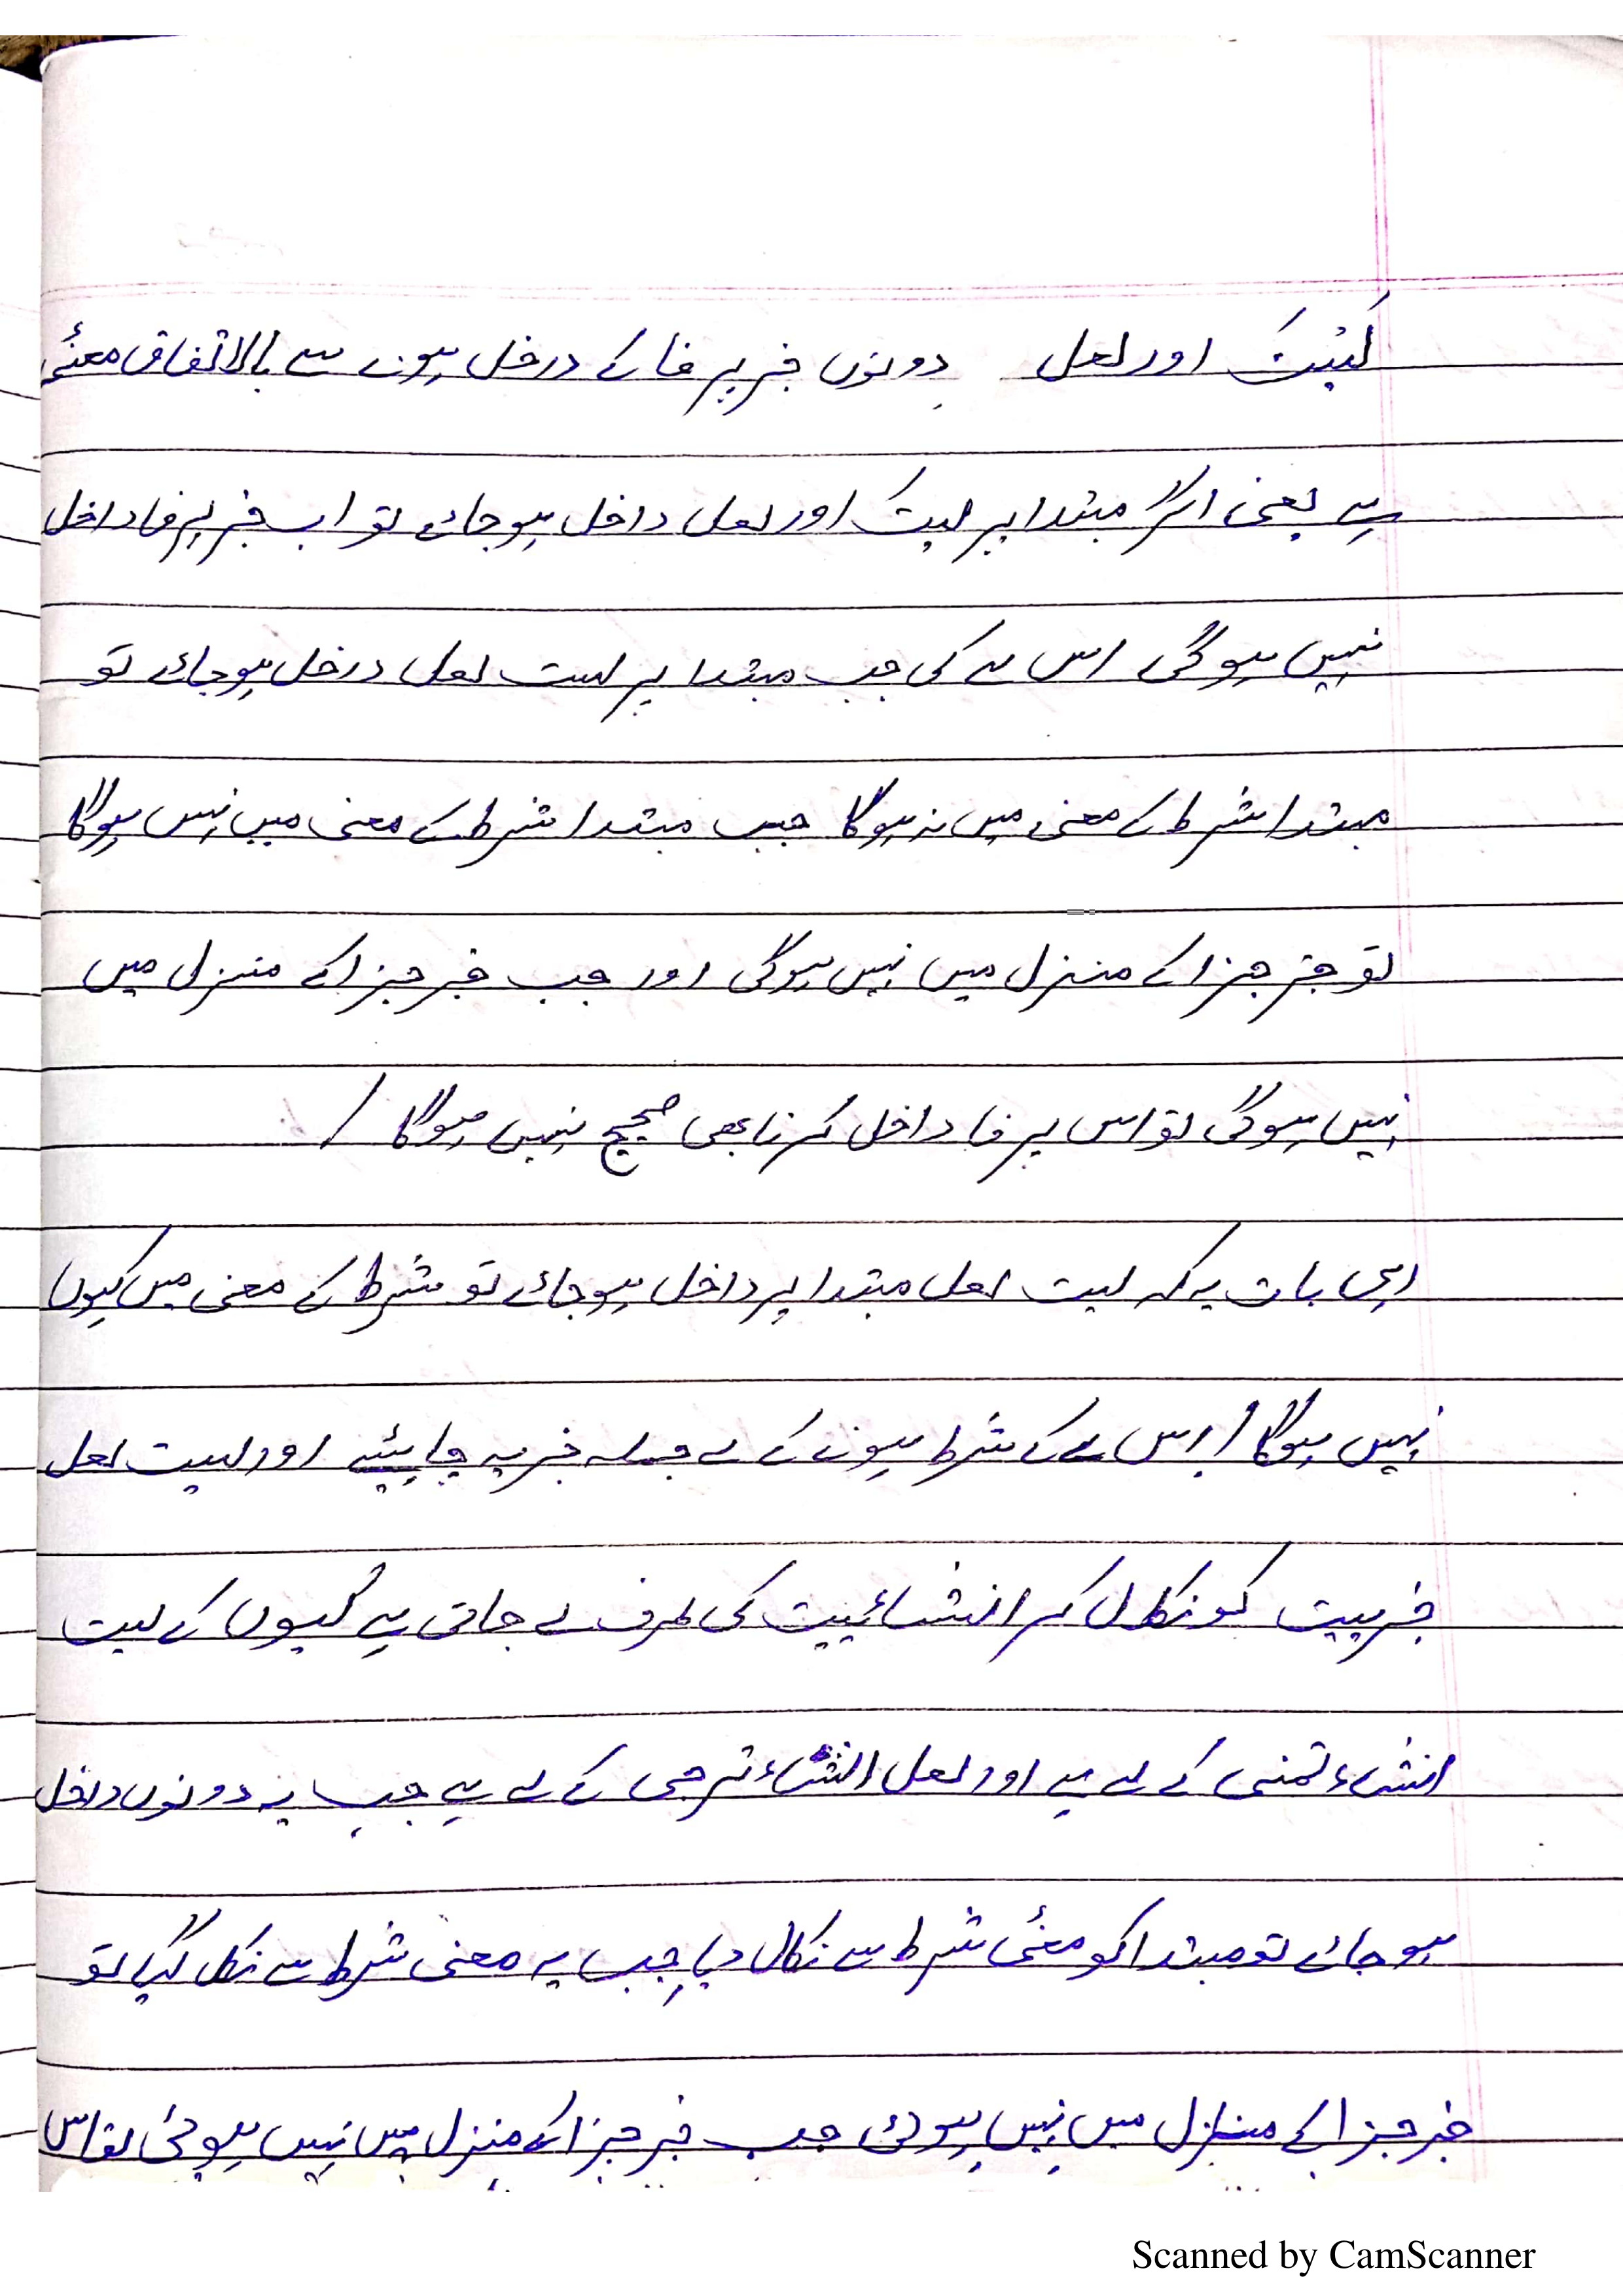 لَیْتَ اور لعل دونوں خبر پر فا کے درخل ہونے سے بالاتفاق معنئی
ہے یعنی اگر مبتدا پر لیتَ اور لعل داخل ہوجائے تو اب خبر پر فا داخل
نہیں ہوگی اس لے کی جب مبتدا پر لیت لعل درخل ہوجائے تو
مبتدا شرط کے معنی میں نہ ہوگا جب مبتدا شرط کے معنی میں نہیں ہوگا
تو خبر جزا کے منزل میں نہیں ہوگی اور جب خبر جزا کے منزل میں
نہیں ہوگی تو اس پر فا داخل کرنا بھی صحیح نہیں ہوگا /
رہی بات یہ کہ لیت لعل مبتدا پر داخل ہوجائے تو شرط کے معنی میں کیوں
نہیں ہوگا / اس لے کے شرط ہونے کے لے جملہ خبریہ چاہیئے اور لیت لعل
خبرییت کو نکال کر انشائییت کی طرف لے جاتی ہے کیوں کے لیت
انشاء تمنی کے لے ہے اور لعل انشاء ترجی کے لے ہے جب یہ دونوں داخل
ہوجائے تو مبتدا کو معنٔی شرط سے نکال دیا جب یہ معنی شرط سے نکل گیا تو
خبر جزا کے منزل میں نہیں ہوئی جب خبر جزا کے منزل میں نہیں ہوئی تو اس
Scanned by CamScanner